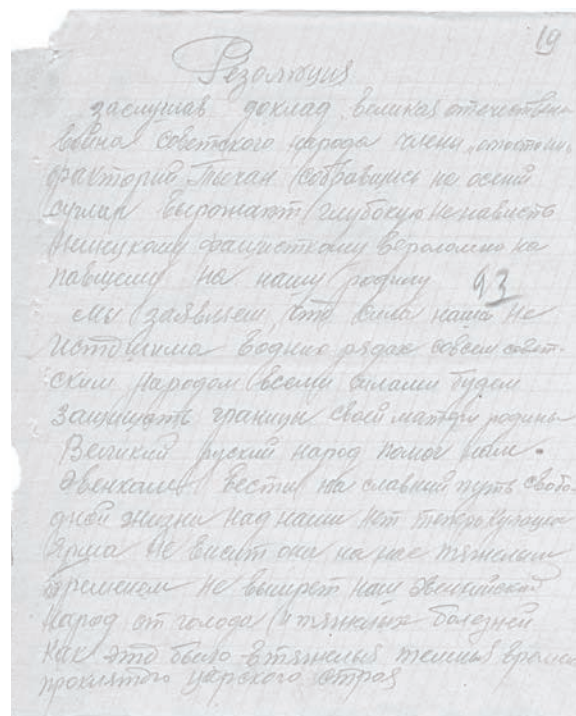 19
Резолюция
заслушав доклад великая отечествена
война советского народа члены
фактории Тычан собравшись на осений
суглан выражают глубокую ненависть
немецкому фашисткому вероломно на
павшему на нашу родину
93
мы заявляем, что сила наша не
истощима водних рядах совсем совет-
ским народом всеми силами будем
защищать границы своей матери родины
Великий руский народ помог нам
эвенкам вести на славный путь свобо-
дной жизни над нами нет теперо
ярма не висит она на нас тяжелым
бременем не вымрет наш эвенкийский
народ от голода и тяжелых болезней
как это было втяжелыя темныя времена
проклятого царского строя